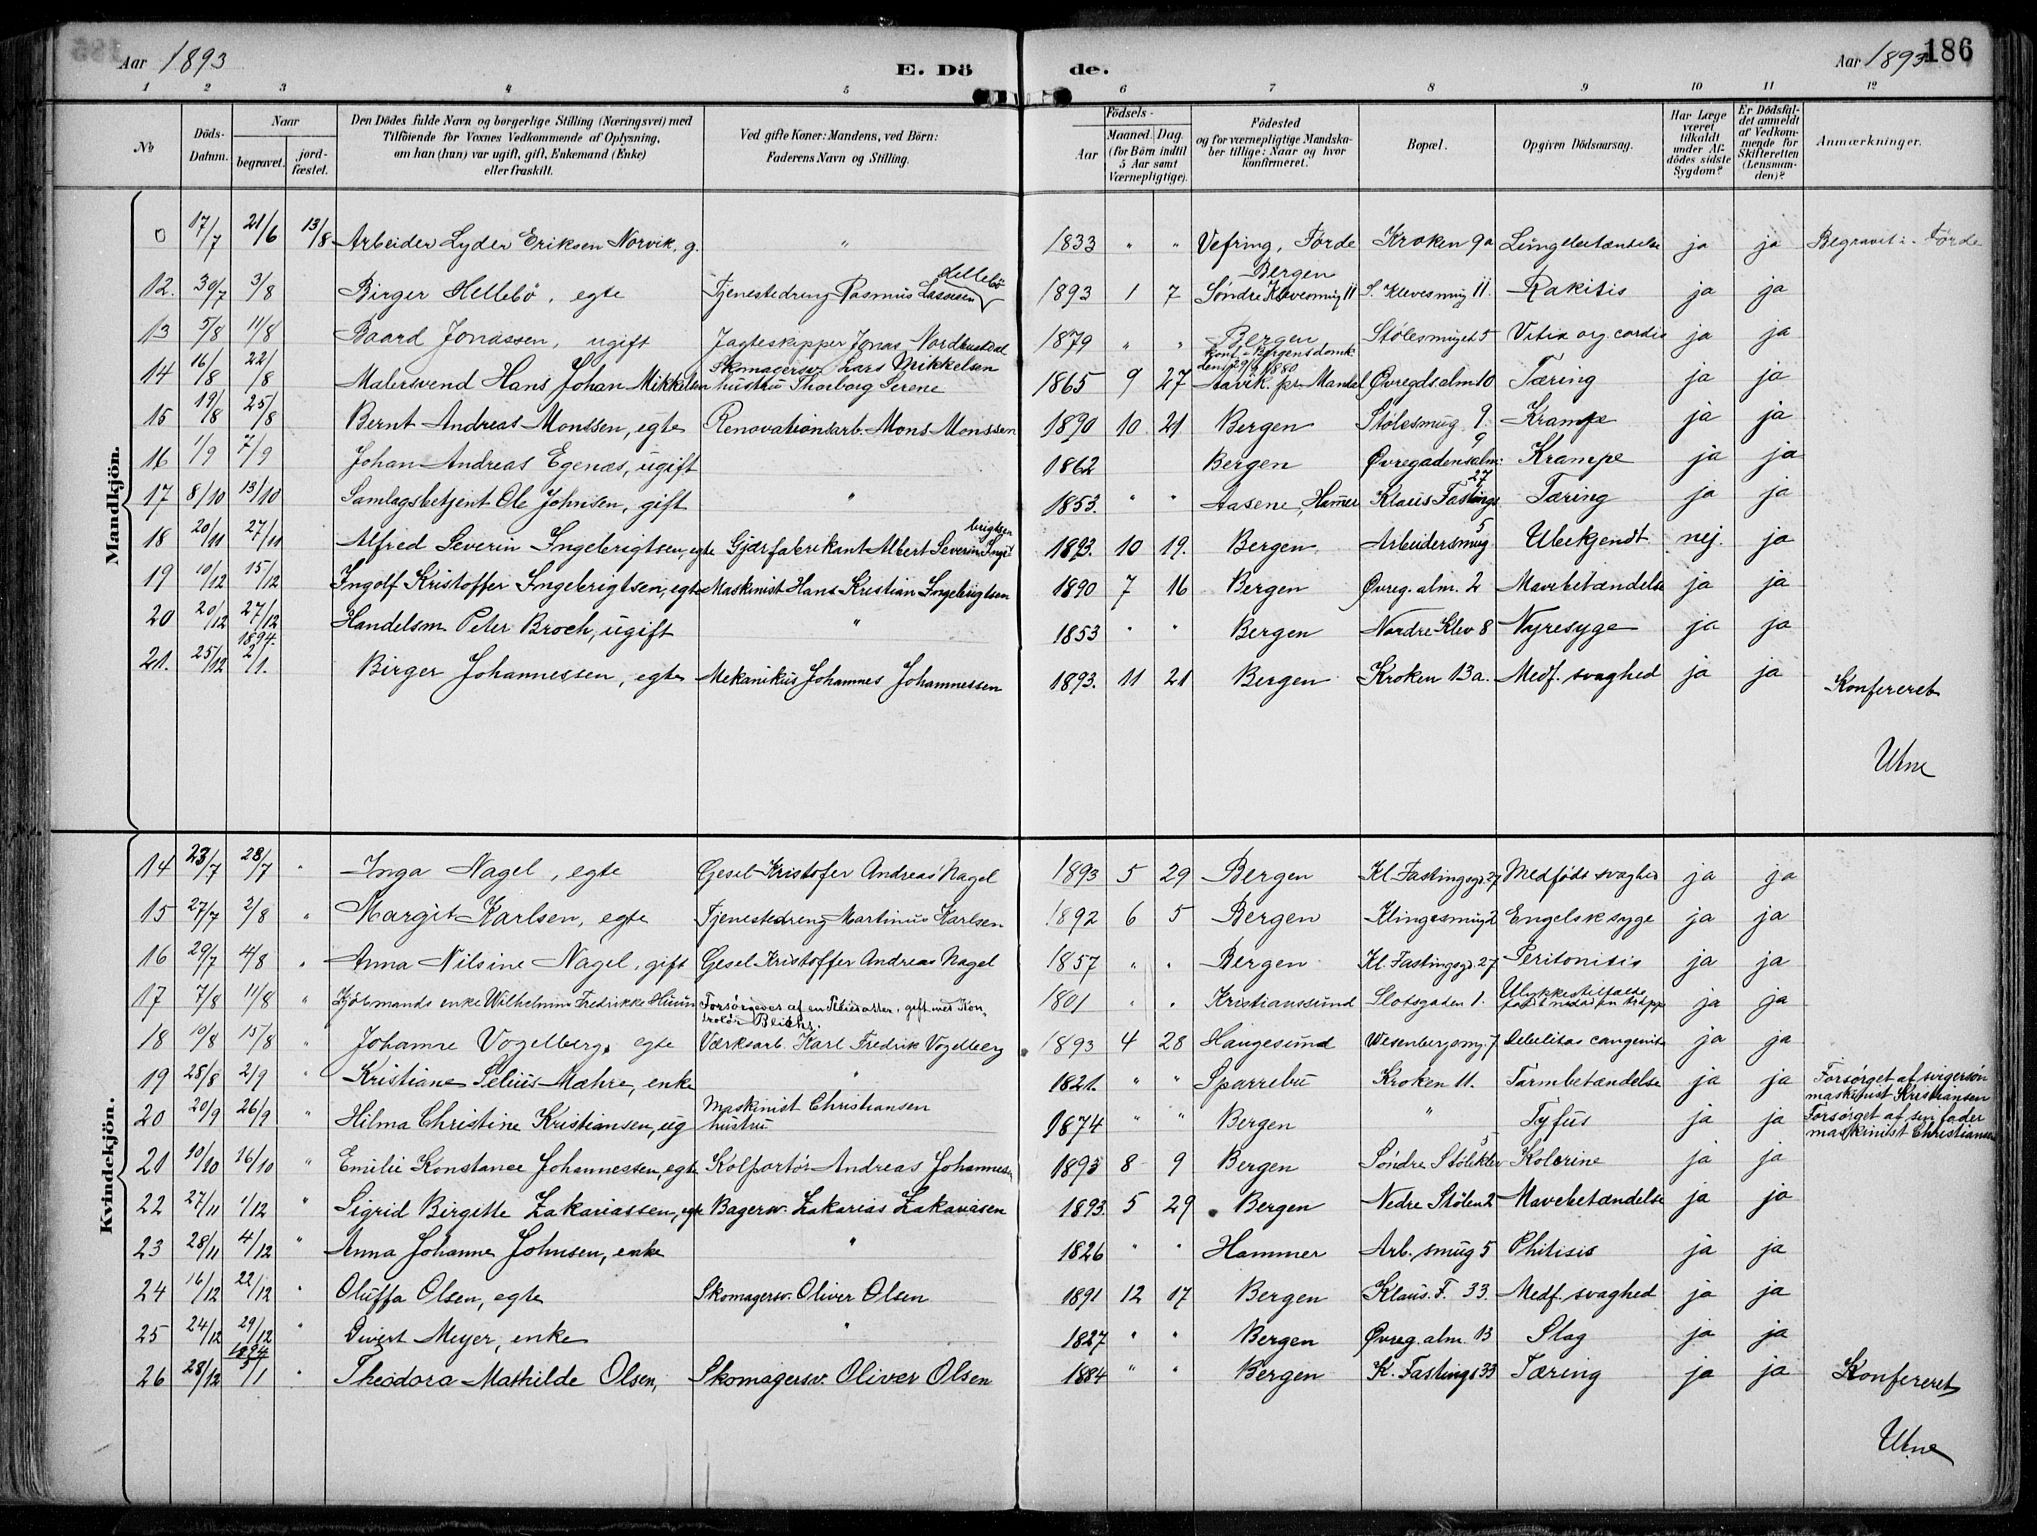 Aar 1893
E. Dö de.
Aar 1893
186
1 2 3 4 5 6 7 8 9 10 11 12
№
Döds-Datum.
Naar
begravet.
jord-fæstet.
Den Dödes fulde Navn og borgerlige Stilling (Næringsvei) med
Tilföiende for Voxnes Vedkommende af Oplysning,
om han (hun) var ugift, gift, Enkemand (Enke)
eller fraskilt.
Ved gifte Koner: Mandens, ved Börn:
Faderens Navn og Stilling.
Födsels-
Aar
Maaned. Dag.
(for Börn indtil
5 Aar samt
Værnepligtige).
Födested
og for værnepligtige Mandskaber tillige: Naar og hvor
konfirmeret.
Bopæl.
Opgiven Dödsaarsag.
Har Læge
været
tilkaldt
under Afdödes sidste
Sygdom?
Er Dödsfaldet anmeldt
af Vedkommende for
Skifteretten
(Lensmanden)?
Anmærkninger.
Mandkjön.
0 17/7 21/6 13/8 Arbeider Lyder Eriksen Norvik, g. " 1833 " " Vefring, Förde Kroken 9a Lungebetændelse ja ja Begravet i Förde
12. 30/7 3/8 Birger Hellebö, egte Tjenestedreng Rasmus Lassesen Hellebö 1893 1 7 Bergen Söndre Klevesmug 11 S. Klevesmug 11. Rakitis ja ja
13 5/8 11/8 Baard Jonassen, ugift Jagteskipper Jonas Nordhusdal 1879 " " Bergen Stølesmuget 5 Vitia org. cordis ja ja
14 16/8 22/8 Malersvend Hans Johan Mikkelsen Skomagersv. Lars Mikkelsen hustru Thorborg Serene 1865 9 27 Konf. i Bergens domk. den 29/ 1880 Aavik pr. Mandal Øvregdsalm 10 Tæring ja ja
15 19/8 25/8 Bernt Andreas Monssen, egte Renovationsarb. Mons Monssen 1890 10 21 Bergen Stølesmug 9. Krampe ja ja
16 1/9 7/9 Johan Andreas Egenæs, ugift 1862 Bergen Øvregadensalm. 9 Krampe ja ja
17 8/10 13/10 Samlagsbetjent Ole Johnsen, gift " 1853. " " Aasene, Hamer Klaus Fastings 27 Tæring ja ja
18 20/11 27/11 Alfred Severin Ingebrigtsen, egte Gjærfabrikant Albert Severin Ingebrigtsen 1893. 10 19. Bergen Arbeidersmug 5 Ubekjendt nej. ja
19 10/12 15/12 Ingolf Kristoffer Ingebrigtsen, egte Maskinist Hans Kristian Ingebrigtsen 1890 7 16 Bergen Øvreg. alm. 2 Mavebetændelse ja ja
20 20/12 27/12 Handelsm. Peter Broch, ugift " 1853 " " Bergen Nordre Klev 8 Nyresyge ja ja
21. 25/12 1894. 2/1. Birger Johannessen, egte Mekanikus Johannes Johannessen 1893. 11 21 Bergen Kroken 13a. Medf. svaghed ja ja
Konfereret
Utne
Kvindekjön.
14 23/7 28/7 " Inga Nagel, egte Gesel Kristofer Andreas Nagel 1893 5 29 Bergen Kl. Fastingsgd. 27 Medfödt svaghed ja ja
15 27/7 2/8 " Margit Karlsen, egte Tjenestedreng Martinius Karlsen 1892 6 5 Bergen Klingesmug 2 Engelsk syge ja ja
16 29/7 4/8 " Anna Nilsine Nagel, gift Gesel Kristoffer Andreas Nagel 1857 " " Bergen Kl. Fastingsgd. 27 Peritonitis ja ja
17 7/8 11/8 " Kjöbmands enke Wilhelmine Fredrikke Forsörgedes af en gift med Kontrolör 1801 " " Kristianssund Slotsgaden 1. Ulykkestilfælde ja ja
18 10/8 15/8 " Johanne Vogelberg, egte Værksarb. Karl Fredrik Vogelberg 1893 4 28 Haugesund Wesenbergsmg. 7 Debilitas congenita ja ja
19 28/8 2/9 " Kristiane Mæhre, enke " 1821. " " Sparrebu Kroken 11. Tarmbetændelse ja ja Forsørget af svigersön maskinist Kristiansen
20 20/9 26/9 " Hilma Christine Kristiansen, ug Maskinist Christiansen hustru 1874 " " Bergen " Tyfus ja ja Forsørget af sin fader maskinist Christiansen
21 10/10 16/10 " Emilie Konstance Johannessen, egte Kolportör Andreas Johannessen 1893 8 9 Bergen Söndre Stöleklev 5 Kolerine ja ja
22 27/11 1/12 " Sigrid Birgitte Zakariassen, egte Bagersv. Zakarias Zakariasen 1893. 5 29 Bergen Nedre Stølen 2 Mavebetændelse ja ja
23 28/11 4/12 " Anna Johanne Johnsen, enke " 1826 " " Hammer Arb. smug 5 Phitisis ja ja
24 16/12 22/12 " Oluffa Olsen, egte Skomagersv. Oliver Olsen 1891 12 17 Bergen Klaus. F. 33. Medf. svaghed ja ja
25 24/12 29/12 " Divert Meyer, enke " 1827 " " Bergen Øvreg. alm. 13 Slag ja ja
26 28/12 1894 3/1 " Theodora Mathilde Olsen, Skomagersv. Oliver Olsen 1884 " " Bergen K. Fastings 33 Tæring ja ja
Konfereret
Utne